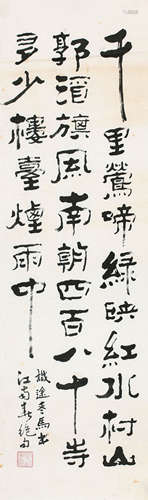 千里鶯啼綠映紅水村山
郭酒旗風南朝四百八十寺
多少樓臺煙雨中
識途老馬書
江南春絕句